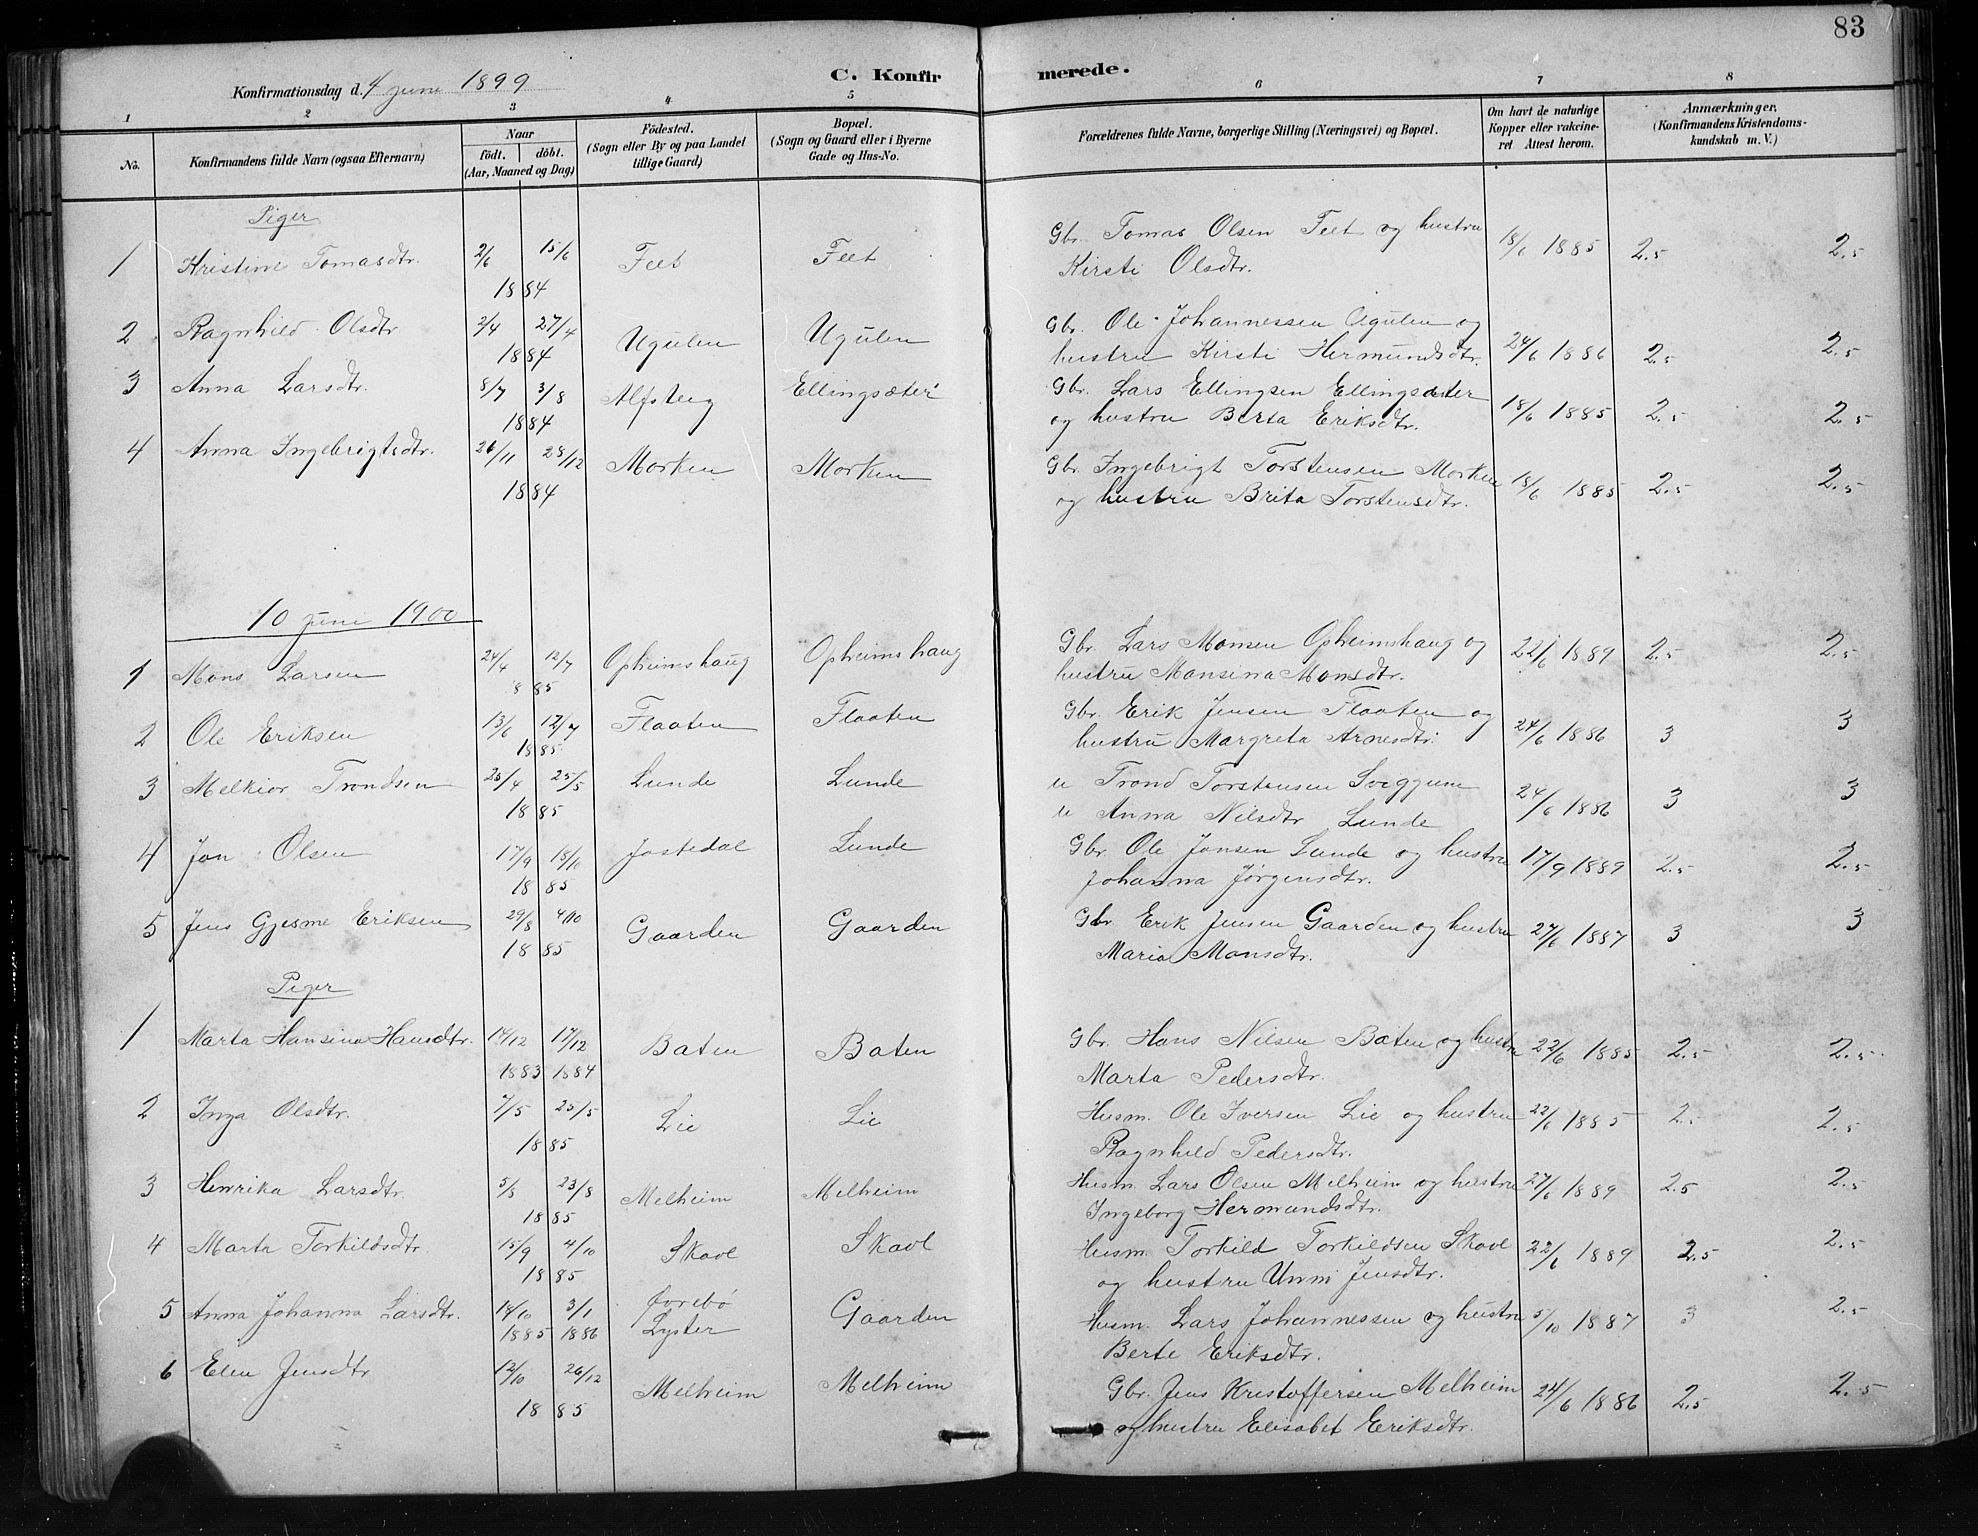 83
Konfirmationsdag d. 4 juni 1899
C. Konfirmerede.
1 2 3 4 5 6 7 8
No.
Konfirmandens fulde Navn (ogsaa Efternavn)
Naar
födt. döbt.
(Aar, Maaned og Dag)
Födested.
(Sogn eller By og paa Landet
tillige Gaard)
Bopæl.
(Sogn og Gaard eller i Byerne
Gade og Hus-No.
Forældrenes fulde Navne, borgerlige Stilling (Næringsvei) og Bopæl.
Om havt de naturlige
Kopper eller vakcine-
ret Attest herom.
Anmærkninger.
(Konfirmandens Kristendoms-
kundskab m. V.)
Piger
1 Kristine Tomasdtr. 2/6 15/6 Feet Feet Gbr. Tomas Olsen Feet og hustru 18/6 1885 2.5 2.5
1884 Kirsti Olsdtr.
2 Ragnhild Olsdtr 2/4 27/4 Ugulen Ugulen Gbr. Ole Johannessen Ugulen og 24/6 1886 2.5 2.5
1884 hustru Kirsti Hermundsdtr.
3 Anna Larsdtr. 8/7 3/8 Alfsteig Ellingsæter Gbr. Lars Ellingsen Ellingsæter 18/6 1885 2.5 2.5
1884 og hustru Berta Eriksdtr.
4 Anna Ingebrigtsdtr. 26/11 28/12 Morken Morken Gbr. Ingebrigt Torstensen Morken 18/6 1885 2.5 2.5
1884 og hustru Brita Torstensdtr.
10 juni 1900
1 Mons Larsen 24/4 12/7 Opheimshaug Opheimshaug Gbr. Lars Monsen Opheimshaug og 22/6 1889 2.5 2.5
85 hustru Mansina Monsdtr.
2 Ole Eriksen 13/6 12/7 Flaaten Flaaten Gbr. Erik Jensen Flaaten og 24/6 1886 3 3
1885 hustru Margreta Arnesdtr.
3 Melkior Trondsen 23/4 25/5 Lunde Lunde u Trond Torstensen Sveggum 24/6 1886 3 3
1885 u Anna Nilsdtr Lunde
4 Jon Olsen 17/9 18/10 Jostedal Lunde Gbr. Ole Jonsen Lunde og hustru 17/9 1889 2.5 2.5
1885 Johanna Jörgensdtr.
5 Jens Gjesme Eriksen 29/8 4/10 Gaarden Gaarden Gbr. Erik Jensen Gaarden og hustru 27/6 1887 3 3
1885 Maria Monsdtr.
Piger
1 Marta Hansina Hansdtr. 14/12 17/12 Baten Baten Gbr. Hans Nilsen Baten og hustru 22/6 1885 2.5 2.5
1883 1884 Marta Pedersdtr.
2 Inga Olsdtr. 7/5 25/5 Lie Lie Husm. Ole Iversen Lie og hustru 22/6 1885 2.5 2.5
1885 Ragnhild Pedersdtr.
3 Henrika Larsdtr. 5/8 23/8 Melheim Melheim Husm. Lars Olsen Melheim og hustru 27/6 1889 2.5 2.5
1885 Ingeborg Hermundsdtr.
4 Marta Torkildsdtr. 15/9 4/10 Skavl Skavl Husm. Torkild Torkildsen Skavl 22/6 1889 2.5 2.5
1885 og hustru Unni Jensdtr.
5 Anna Johanna Larsdtr. 14/10 3/1 Gaarden Husm. Lars Johannessen og hustru 5/10 1887 3 2.5
1885 1886 Lyster Berte Eriksdtr.
6 Elen Jensdtr 12/10 26/12 Melheim Melheim Gbr. Jens Kristoffersen Melheim 24/6 1886 2.5 2.5
1885 og hustru Elisabet Eriksdtr.